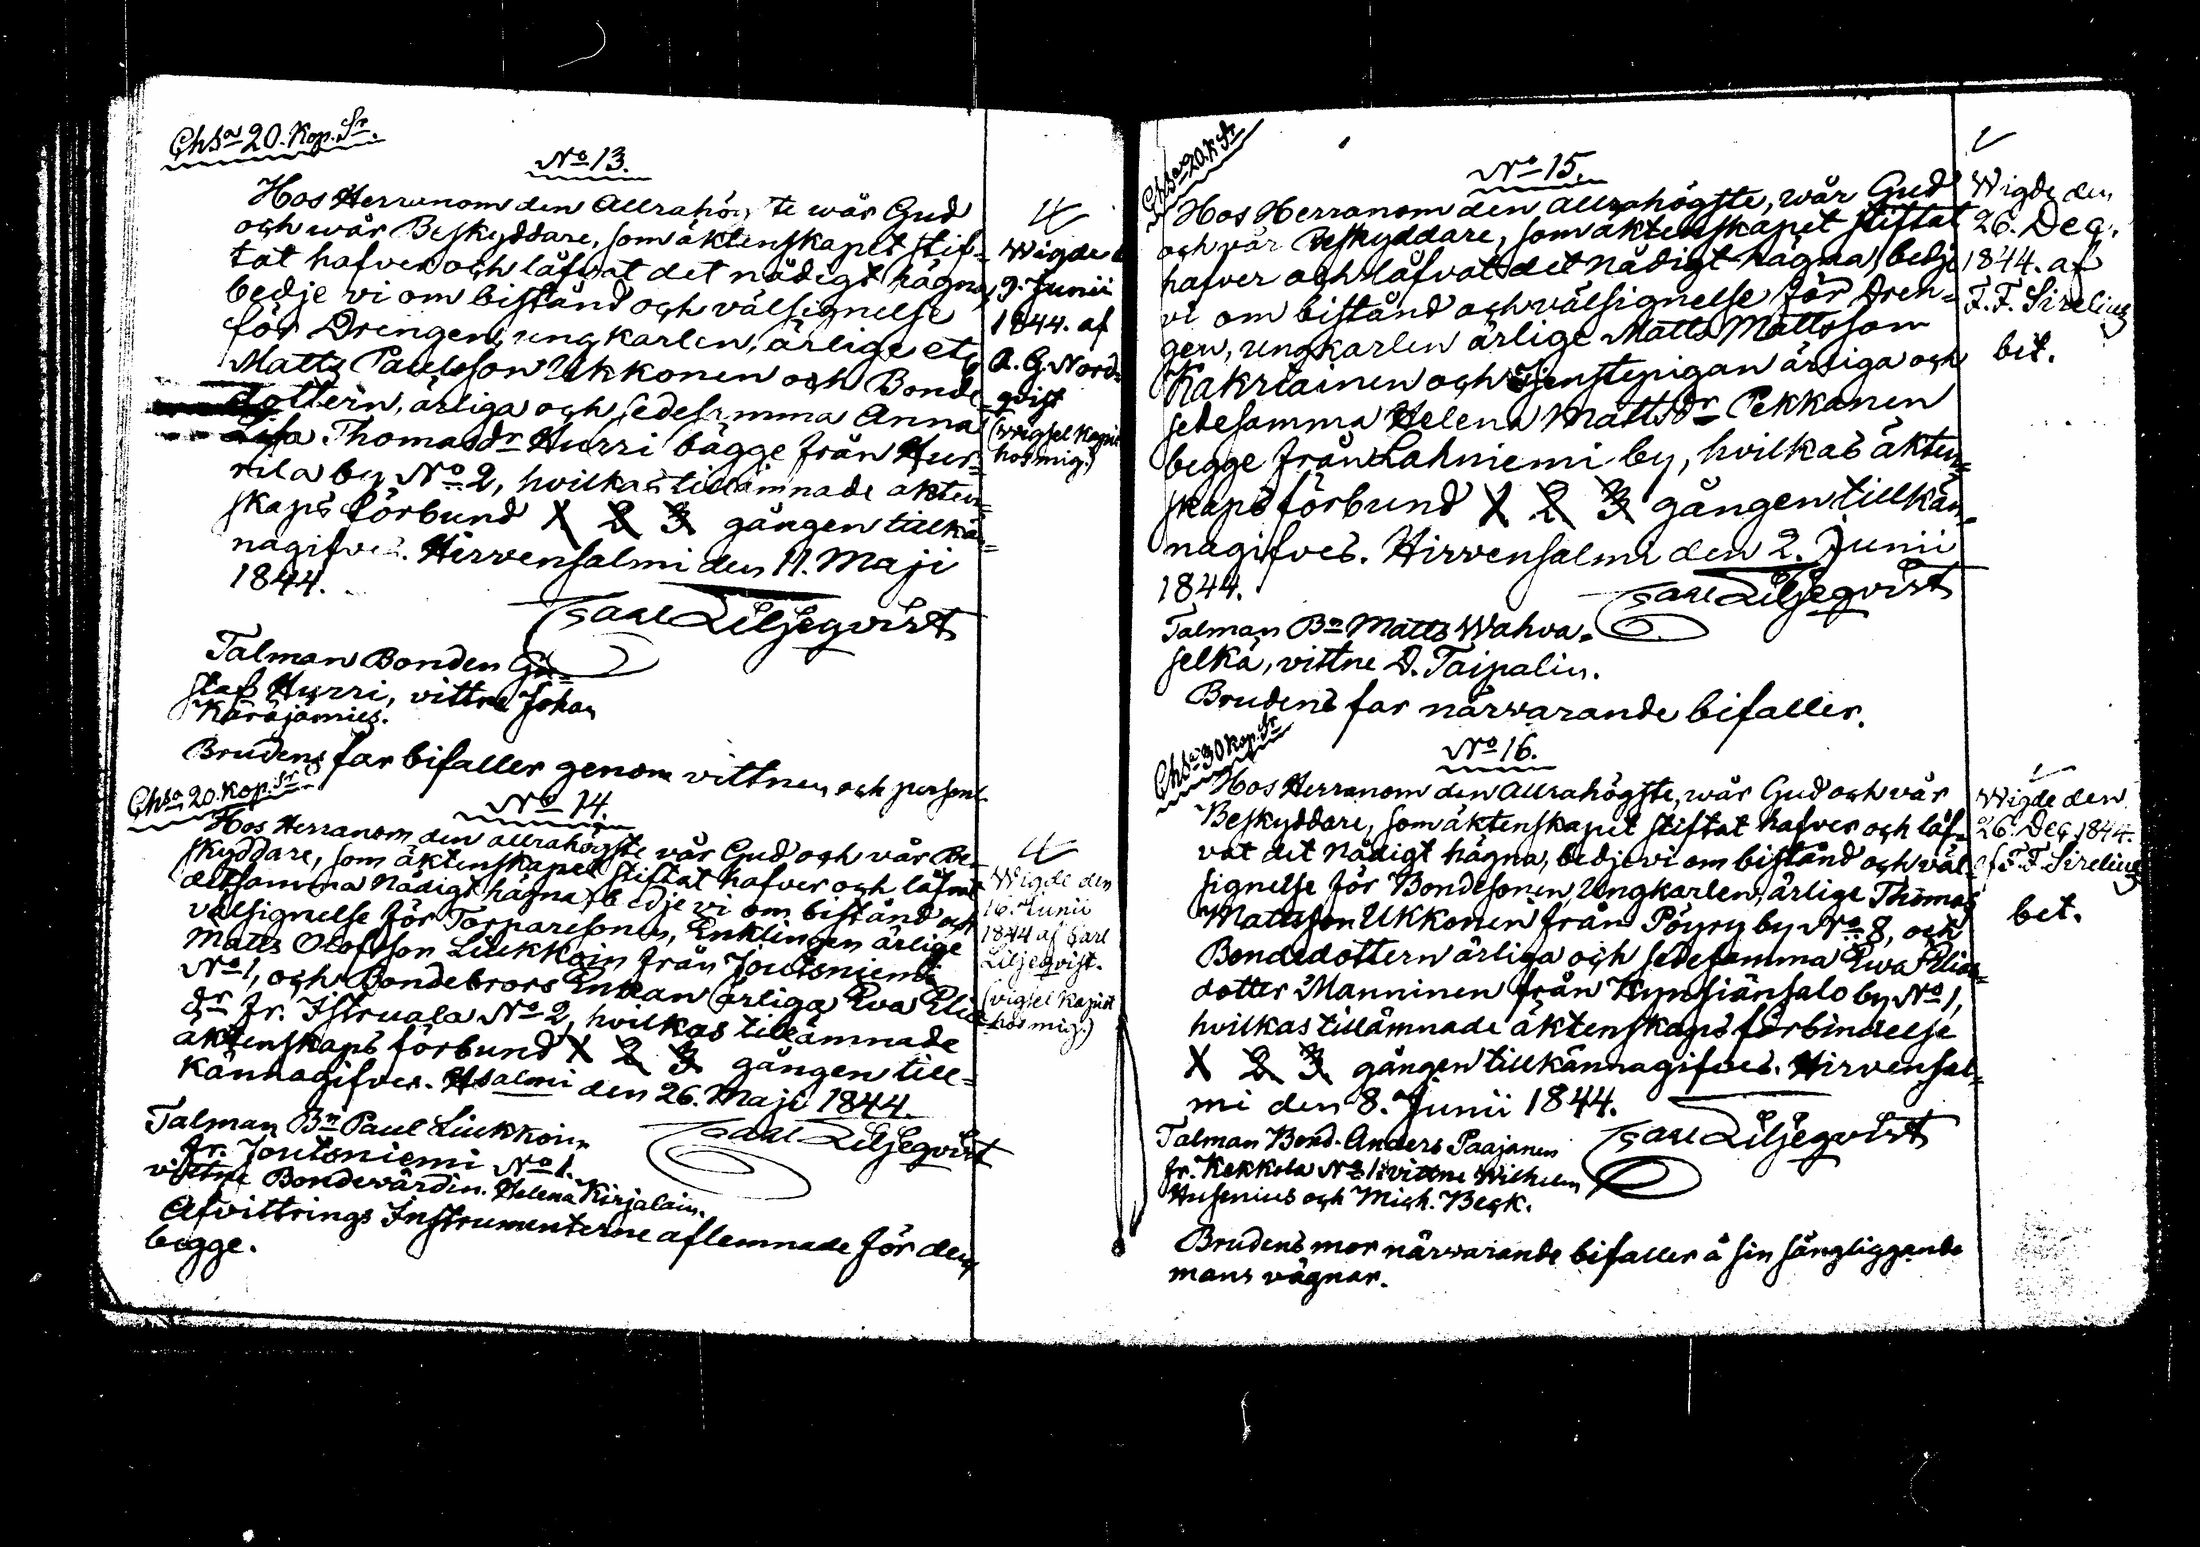 Chsa 20. Kop. Sr.
No 13.
Hos Herranom den Allrahögste wår Gud
och wår Beskyddare, som äktenskapet stif-
tat hafver och låfvat det nådigt hägna,
bedje vi om bistånd och välsignelse
för Drengen, ungkarlen, ärlige etc
Matts Paulsson Ukkonen och Bonde-
dottern, ärliga och sedesamma Anna
Lisa Thomasdr Hurri bägge från Hur-
rila by No 2, hvilkas tillämnade äkten-
skaps förbund 1 2 3 gången tillkän-
nagifves. Hirvensalmi den 11. Maji
1844.
Carl Liljeqvist
Talman Bonden Gu-
staf Hurri, vittne Johan
Käräjämies.
Brudens far bifaller genom vittnen och personl.
Wigde d
9. Junii
1844. af
A. G. Nord-
qvist
(wigsel kapit
hos mig.)
Chsa 20. Kop. Sr
No 14.
Hos Herranom den allrahögste vår Gud och vår Be-
skyddare, som äktenskapet stiftat hafver och låfvat
detsamma nådigt hägna, bedje vi om bistånd och
välsignelse för Torparesonen, Enklingen ärlige
Matts Olofsson Liukkoin från Joutsniemi
No 1, och Bondebrors Enkan ärliga Eva Elias
dr fr. Istruala No 2, hvilkas tillämnade
äktenskaps förbund 1 2 3 gången till-
kännagifves. Hsalmi den 26. Maji 1844.
Carl Liljeqvist
Talman Bn Paul Liukkoin
fr. Joutsniemi No 1.
vittne Bondevärdin. Helena Kirjalain.
Afvittrings Instrumenterne aflemnade för dem
begge.
Wigde den
16. Junii
1844 af Carl
Liljeqvist.
(vigsel kapit
hos mig.)
Chsa 20. K. Sr
No 15.
Hos Herranom den allrahögste, wår Gud
och vår Beskyddare, som äktenskapet stiftat
hafver och låfvat det nådigt hägna, bedje
vi om bistånd och välsignelse för Dren-
gen, ungkarlen ärlige Matts Mattsson
Kakriainen och Tjenstepigan ärliga och
sedesamma Helena Mattsdr Pekkanen
begge från Lahniemi by, hvilkas äkten-
skaps förbund 1 2 3 gången tillkän-
nagifves. Hirvensalmi den 2. Junii
1844.
Carl Liljeqvist
Talman Bn Matts Wahva-
selkä, vittne D. Taipalin.
Brudens far närvarande bifaller.
Wigde den
26. Dec.
1844. af
F. F. Sirelius
bet.
Chsa 30 Kop. Sr
No 16.
Hos Herranom den Allrahögste, wår Gud och vår
Beskyddare, som äktenskapet stiftat hafver och låf-
vat det nådigt hägna, bedje vi om bistånd och väl-
signelse för Bondesonen, Ungkarlen, ärlige Thomas
Mattsson Ukkonen från Pöyry by No 8, och
Bondedottern ärliga och sedesamma Ewa Elias-
dotter Manninen från Kynsiänsalo by No 1,
hvilkas tillämnade äktenskaps förbindelse
1 2 3 gången tillkännagifves. Hirvensal-
mi den 8. Junii 1844.
Carl Liljeqvist
Talman Bond. Anders Paajanen
fr. Kekkola No 1. vittne Wilhelm
Husenius och Mich. Beck.
Brudens mor närvarande bifaller å sin sängliggande
mans vägnar.
Wigde den
26. Dec 1844.
af F. F. Sirelius
bet.